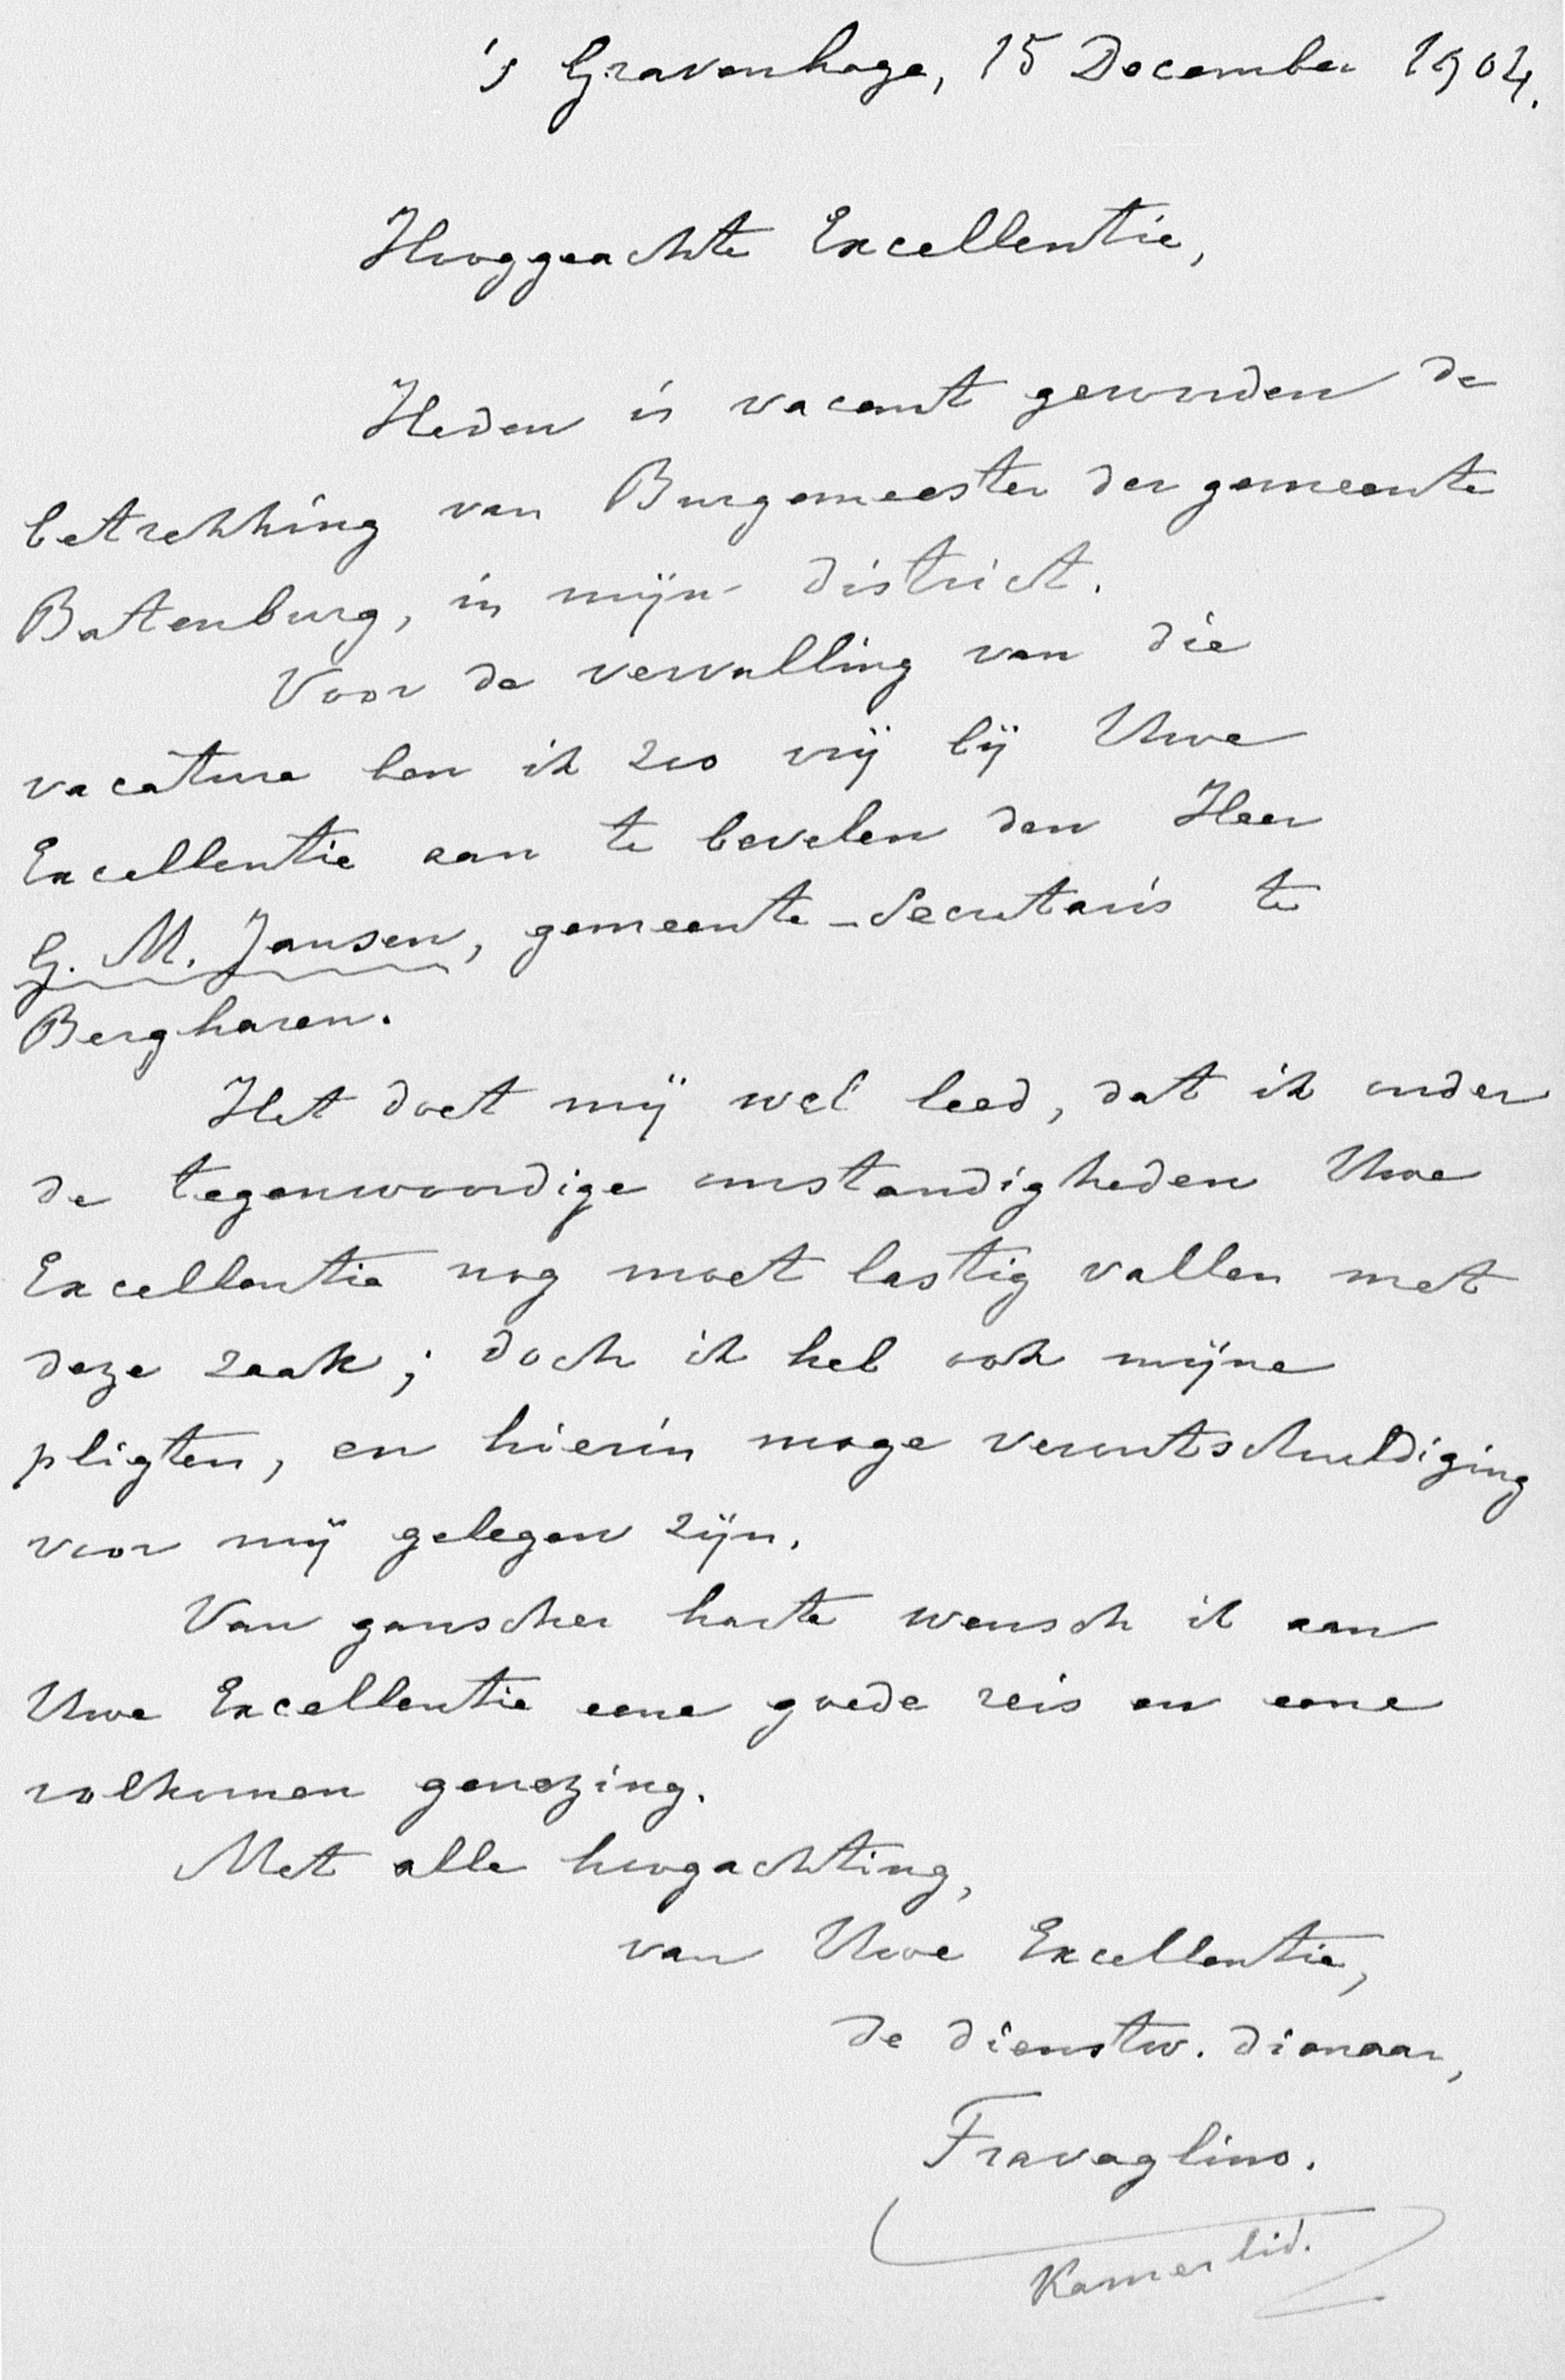 's Gravenhage, 15 December 1904.
Hooggeachte Excellentie,
Heden is vacant geworden de
betrekking van Burgemeester der gemeente
Batenburg, in mijn district.
Voor de vervulling van die
vacature ben ik zoo vrij bij Uwe
Excellentie aan te bevelen den Heer
G. M. Jansen, gemeente-Secretaris te
Bergharen.
Het doet mij wel leed, dat ik onder
de tegenwoordige omstandigheden Uwe
Excellentie nog moet lastig vallen met
deze zaak; doch ik heb ook mijne
pligten, en hierin moge verontschuldiging
voor mij gelegen zijn.
Van ganscher harte wensch ik aan
Uwe Excellentie eene goede reis en eene
volkomen genezing.
Met alle hoogachting,
van Uwe Excellentie,
de dienstw. dienaar,
Travaglino.
Kamerlid.